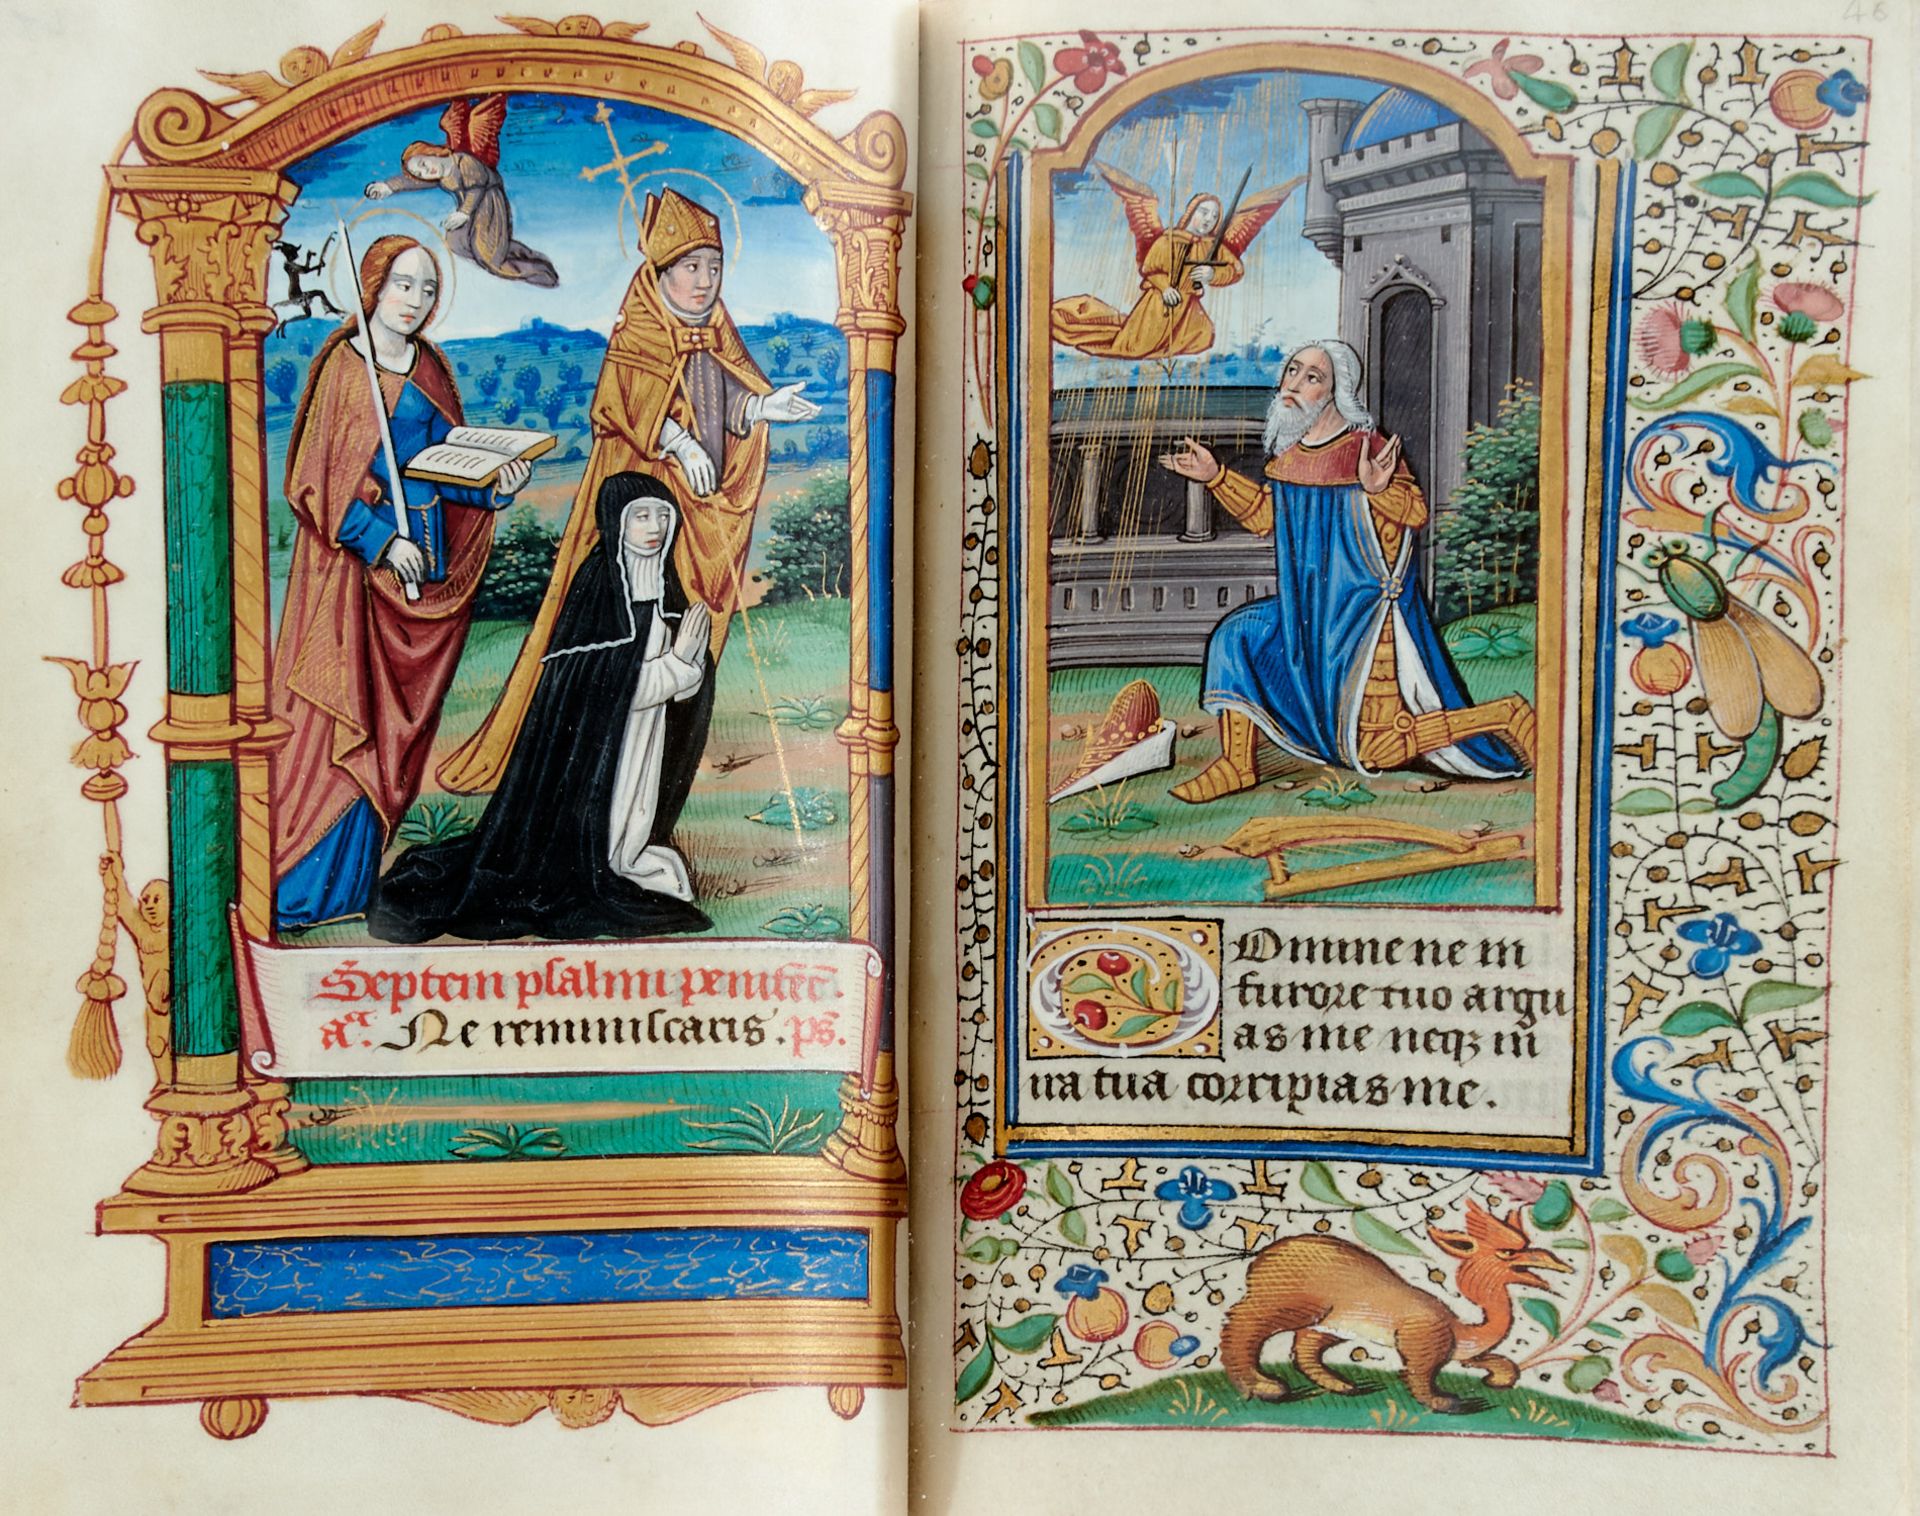 Septem psalmi peniteͫc̄.
aᵃ. Ne reminiscaris. ps̄.
46
Domine ne in
furore tuo argu
as me neqꝫ in
ira tua corripias me.